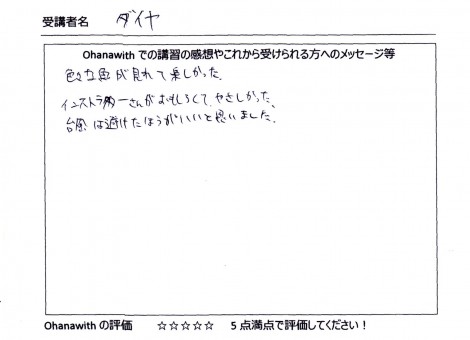 受講者名 ダイヤ
Ohanawith での講習の感想やこれから受けられる方へのメッセージ等
色々な魚が見れて楽しかった。
インストラクターさんがおもしろくてやさしかった、
台風は避けたほうがいいと思いました。
Ohanawith の評価 ☆☆☆☆☆ 5点満点で評価してください！